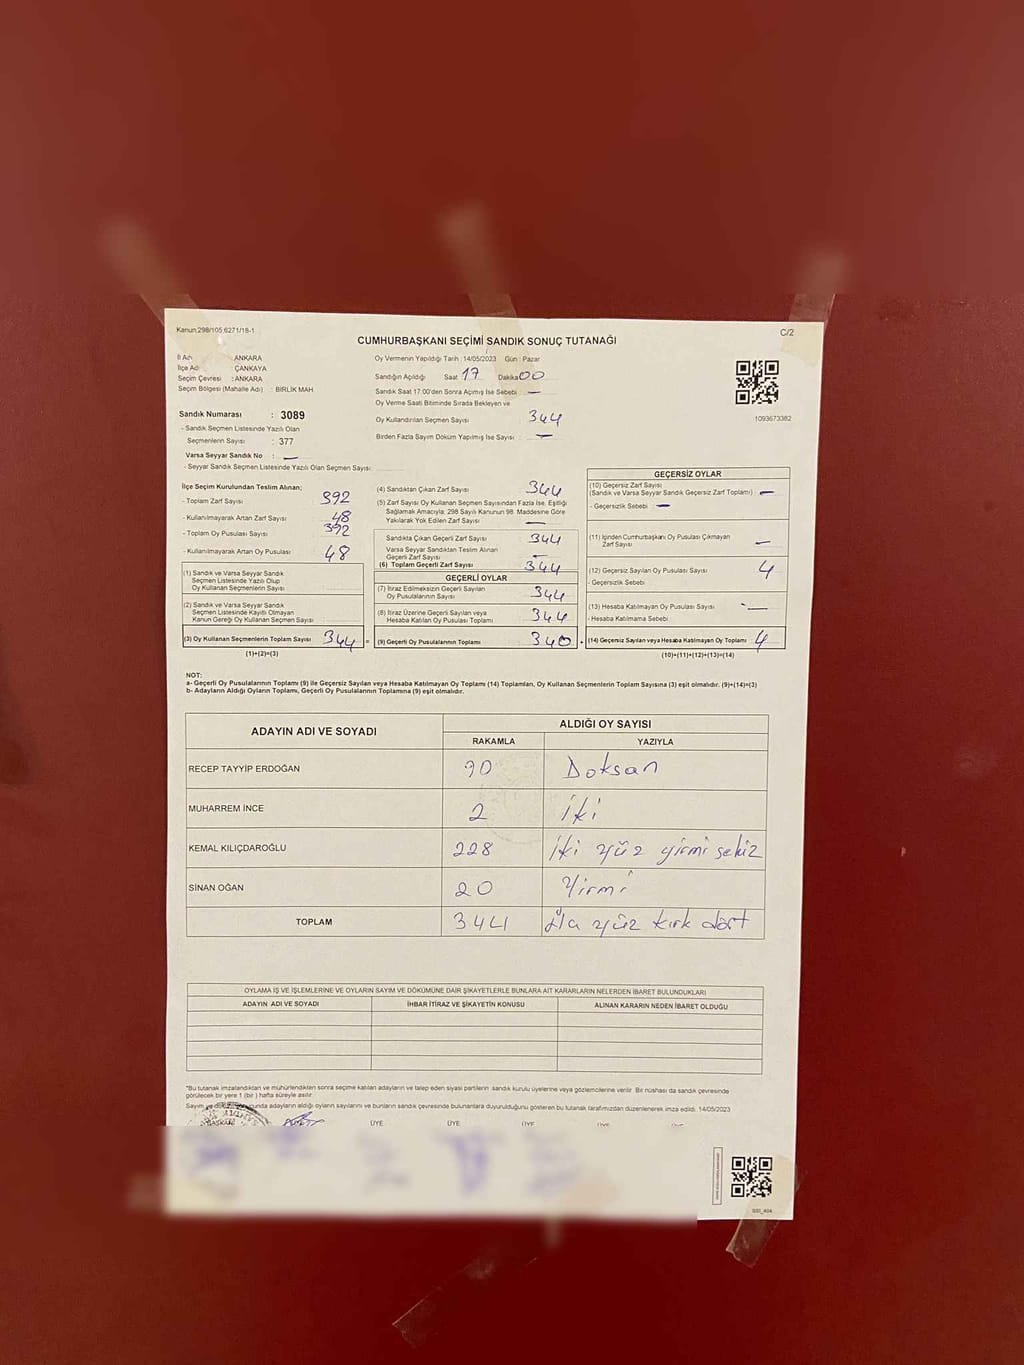 Kanun:298/105;6271/18-1
C/2
CUMHURBAŞKANI SEÇİMİ SANDIK SONUÇ TUTANAĞI
İl Adı : ANKARA
İlçe Adı : ÇANKAYA
Seçim Çevresi : ANKARA
Seçim Bölgesi (Mahalle Adı) : BİRLİK MAH
Sandık Numarası : 3089
- Sandık Seçmen Listesinde Yazılı Olan
Seçmenlerin Sayısı : 377
Varsa Seyyar Sandık No : —
- Seyyar Sandık Seçmen Listesinde Yazılı Olan Seçmen Sayısı:
Oy Vermenin Yapıldığı Tarih : 14/05/2023 Gün : Pazar
Sandığın Açıldığı Saat 17 Dakika 00
Sandık Saat 17.00'den Sonra Açımış İse Sebebi : —
Oy Verme Saati Bitiminde Sırada Bekleyen ve
Oy Kullandırılan Seçmen Sayısı 344
Birden Fazla Sayım Döküm Yapılmış İse Sayısı : —
1093673382
İlçe Seçim Kurulundan Teslim Alınan;
- Toplam Zarf Sayısı 392
- Kullanılmayarak Artan Zarf Sayısı 48
- Toplam Oy Pusulası Sayısı 392
- Kullanılmayarak Artan Oy Pusulası 48
(1) Sandık ve Varsa Seyyar Sandık
Seçmen Listesinde Yazılı Olup
Oy Kullanan Seçmenlerin Sayısı
(2) Sandık ve Varsa Seyyar Sandık
Seçmen Listesinde Kayıtlı Olmayan
Kanun Gereği Oy Kullanan Seçmen Sayısı
(3) Oy Kullanan Seçmenlerin Toplam Sayısı 344 =
(1)+(2)=(3)
(4) Sandıktan Çıkan Zarf Sayısı 344
(5) Zarf Sayısı Oy Kullanan Seçmen Sayısından Fazla İse, Eşitliği
Sağlamak Amacıyla; 298 Sayılı Kanunun 98. Maddesine Göre
Yakılarak Yok Edilen Zarf Sayısı —
Sandıkta Çıkan Geçerli Zarf Sayısı 344
Varsa Seyyar Sandıktan Teslim Alınan
Geçerli Zarf Sayısı —
(6) Toplam Geçerli Zarf Sayısı 344
GEÇERLİ OYLAR
(7) İtiraz Edilmeksizin Geçerli Sayılan
Oy Pusulalarının Sayısı 344
(8) İtiraz Üzerine Geçerli Sayılan veya
Hesaba Katılan Oy Pusulası Toplamı 344
(9) Geçerli Oy Pusulalarının Toplamı 340 +
GEÇERSİZ OYLAR
(10) Geçersiz Zarf Sayısı
(Sandık ve Varsa Seyyar Sandık Geçersiz Zarf Toplamı) —
- Geçersizlik Sebebi : —
(11) İçinden Cumhurbaşkanı Oy Pusulası Çıkmayan
Zarf Sayısı —
(12) Geçersiz Sayılan Oy Pusulası Sayısı 4
- Geçersizlik Sebebi
(13) Hesaba Katılmayan Oy Pusulası Sayısı —
- Hesaba Katılmama Sebebi
(14) Geçersiz Sayılan veya Hesaba Katılmayan Oy Toplamı 4
(10)+(11)+(12)+(13)=(14)
NOT:
a- Geçerli Oy Pusulalarının Toplamı (9) ile Geçersiz Sayılan veya Hesaba Katılmayan Oy Toplamı (14) Toplamları, Oy Kullanan Seçmenlerin Toplam Sayısına (3) eşit olmalıdır. (9)+(14)=(3)
b- Adayların Aldığı Oyların Toplamı, Geçerli Oy Pusulalarının Toplamına (9) eşit olmalıdır.
ADAYIN ADI VE SOYADI ALDIĞI OY SAYISI
RAKAMLA YAZIYLA
RECEP TAYYİP ERDOĞAN 90 Doksan
MUHARREM İNCE 2 İki
KEMAL KILIÇDAROĞLU 228 İki yüz yirmi sekiz
SİNAN OĞAN 20 Yirmi
TOPLAM 344 yüz kırk dört
OYLAMA İŞ VE İŞLEMLERİNE VE OYLARIN SAYIM VE DÖKÜMÜNE DAİR ŞİKAYETLERLE BUNLARA AİT KARARLARIN NELERDEN İBARET BULUNDUKLARI
ADAYIN ADI VE SOYADI İHBAR İTİRAZ VE ŞİKAYETİN KONUSU ALINAN KARARIN NEDEN İBARET OLDUĞU
*Bu tutanak imzalandıktan ve mühürlendikten sonra seçime katılan adayların ve talep eden siyasi partilerin sandık kurulu üyelerine veya gözlemcilerine verilir. Bir nüshası da sandık çevresinde
görülecek bir yere 1 (bir) hafta süreyle asılır.
Sayım ve sonucunda adayların aldığı oyların sayılarını ve bunların sandık çevresinde bulunanlara duyurulduğunu gösteren bu tutanak tarafımızdan düzenlenerek imza edildi. 14/05/2023
BAŞKAN ÜYE ÜYE ÜYE